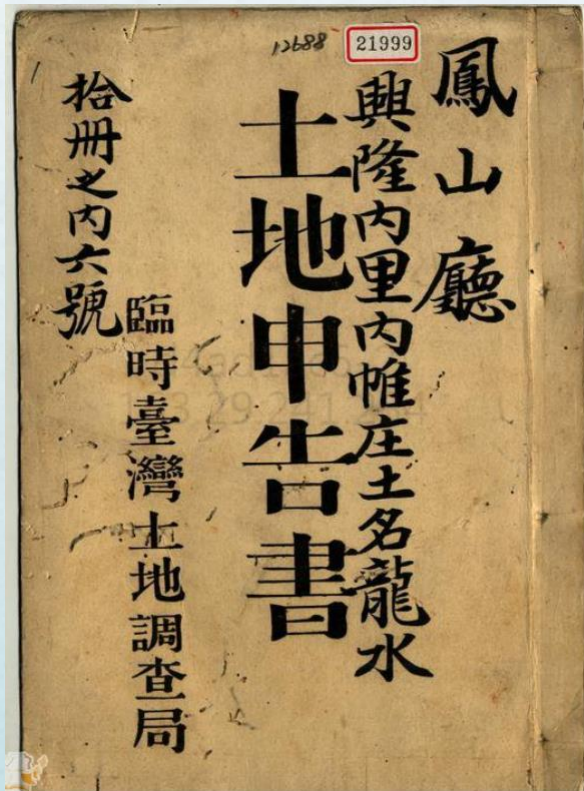 12688
21999
鳳山廳
興隆内里内帷庄土名龍水
土地申告書
臨時臺灣土地調査局
拾冊之内六號